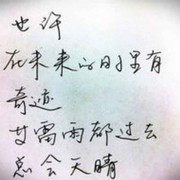 也许
在未来的日子里有
奇迹
艾雷雨都过去
总会天晴